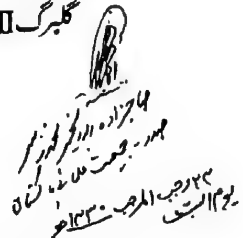 گلبرگ II
صاحبزادہ ابوالخیر محمد زبیر
صدر جمعیت علمائے پاکستان
۲۳ رجب المرجب ۱۴۳۰ھ
یوم السبت